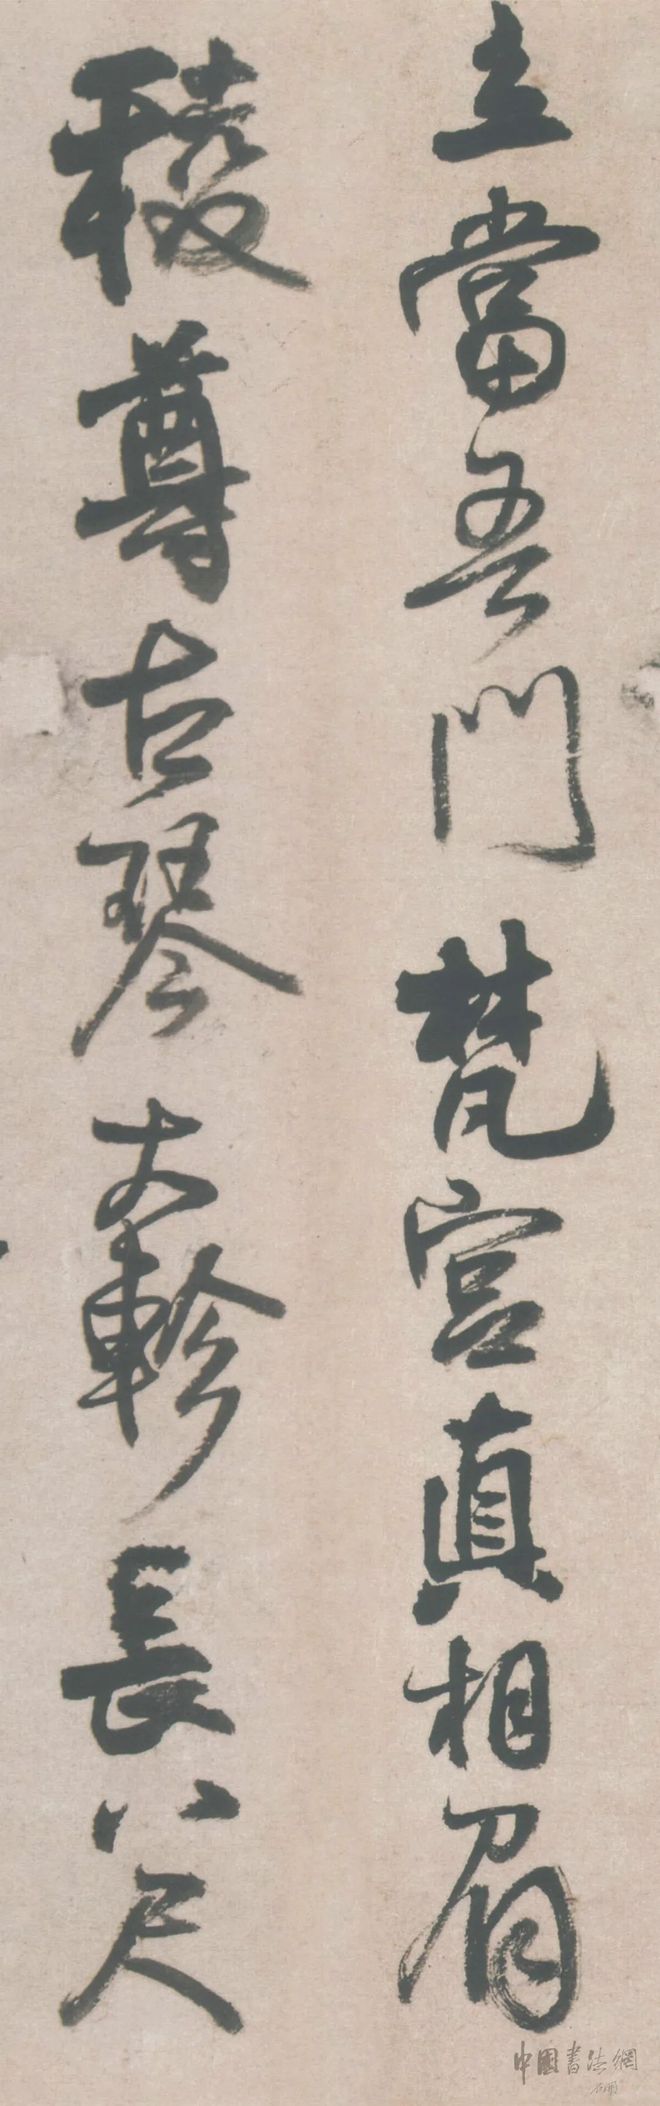 立當吾門梵宮真相眉
稜尊古琴大軫長八尺
中國書法網